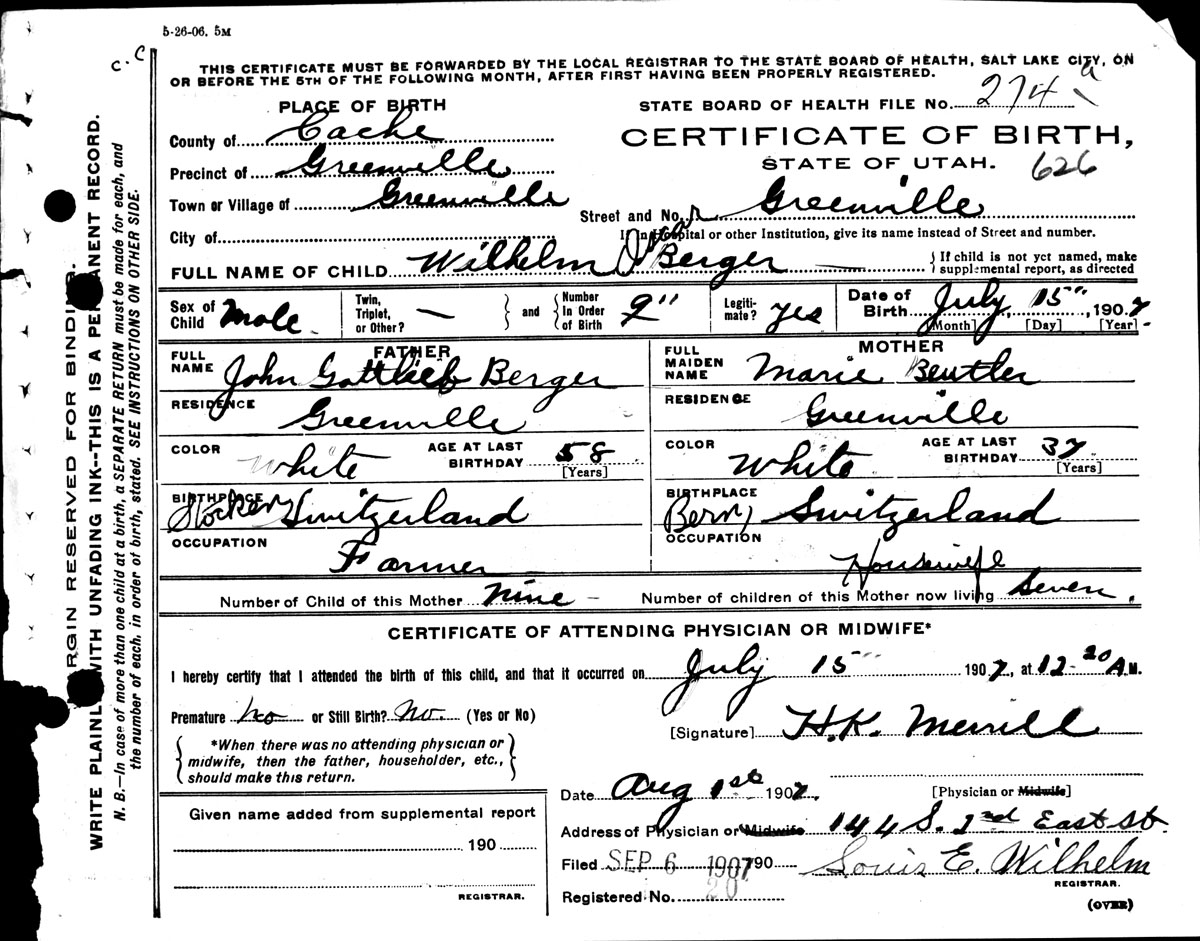 5-26-06. 5M
C. C
THIS CERTIFICATE MUST BE FORWARDED BY THE LOCAL REGISTRAR TO THE STATE BOARD OF HEALTH, SALT LAKE CITY, ON
OR BEFORE THE 5TH OF THE FOLLOWING MONTH, AFTER FIRST HAVING BEEN PROPERLY REGISTERED.
PLACE OF BIRTH
STATE BOARD OF HEALTH FILE No. 274 a
County of Cache
CERTIFICATE OF BIRTH,
STATE OF UTAH. 626
Precinct of Greenville
Town or Village of Greenville
Street and No. Greenville
City of
If in Hospital or other Institution, give its name instead of Street and number.
FULL NAME OF CHILD Wilhelm Oscar Berger
{ If child is not yet named, make
supplemental report, as directed
Sex of Child Male
Twin, Triplet, or Other? —
and
Number In Order of Birth 9"
Legiti- mate? Yes
Date of Birth July 15", 1907
[Month] [Day] [Year]
FATHER
FULL NAME John Gottlieb Berger
RESIDENCE Greenville
COLOR White
AGE AT LAST BIRTHDAY 58
[Years]
BIRTHPLACE Switzerland
OCCUPATION Farmer
MOTHER
FULL MAIDEN NAME Marie Beutler
RESIDENCE Greenville
COLOR White
AGE AT LAST BIRTHDAY 37
[Years]
BIRTHPLACE Bern, Switzerland
OCCUPATION Housewife
Number of Child of this Mother Nine –
Number of children of this Mother now living Seven.
CERTIFICATE OF ATTENDING PHYSICIAN OR MIDWIFE*
I hereby certify that I attended the birth of this child, and that it occurred on July 15" 1907, at 12-20 A.M.
Premature no or Still Birth? No. (Yes or No)
[Signature] H.K. Merrill
{ *When there was no attending physician or
midwife, then the father, householder, etc.,
should make this return. }
[Physician or Midwife]
Date Aug 1st 1907.
Address of Physician or Midwife 144 S. 2nd East St.
Given name added from supplemental report
190
REGISTRAR.
Filed SEP 6 1907 190
Louis E. Wilhelm
REGISTRAR.
Registered No. 20
(OVER)
MARGIN RESERVED FOR BINDING.
WRITE PLAINLY WITH UNFADING INK--THIS IS A PERMANENT RECORD.
N. B.—In case of more than one child at a birth, a SEPARATE RETURN must be made for each, and
the number of each, in order of birth, stated. SEE INSTRUCTIONS ON OTHER SIDE.